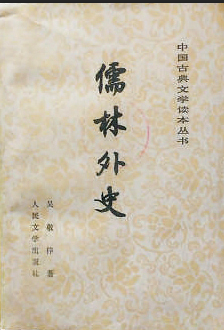 中国古典文学读本丛书
儒林外史
吴敬梓著
人民文学出版社